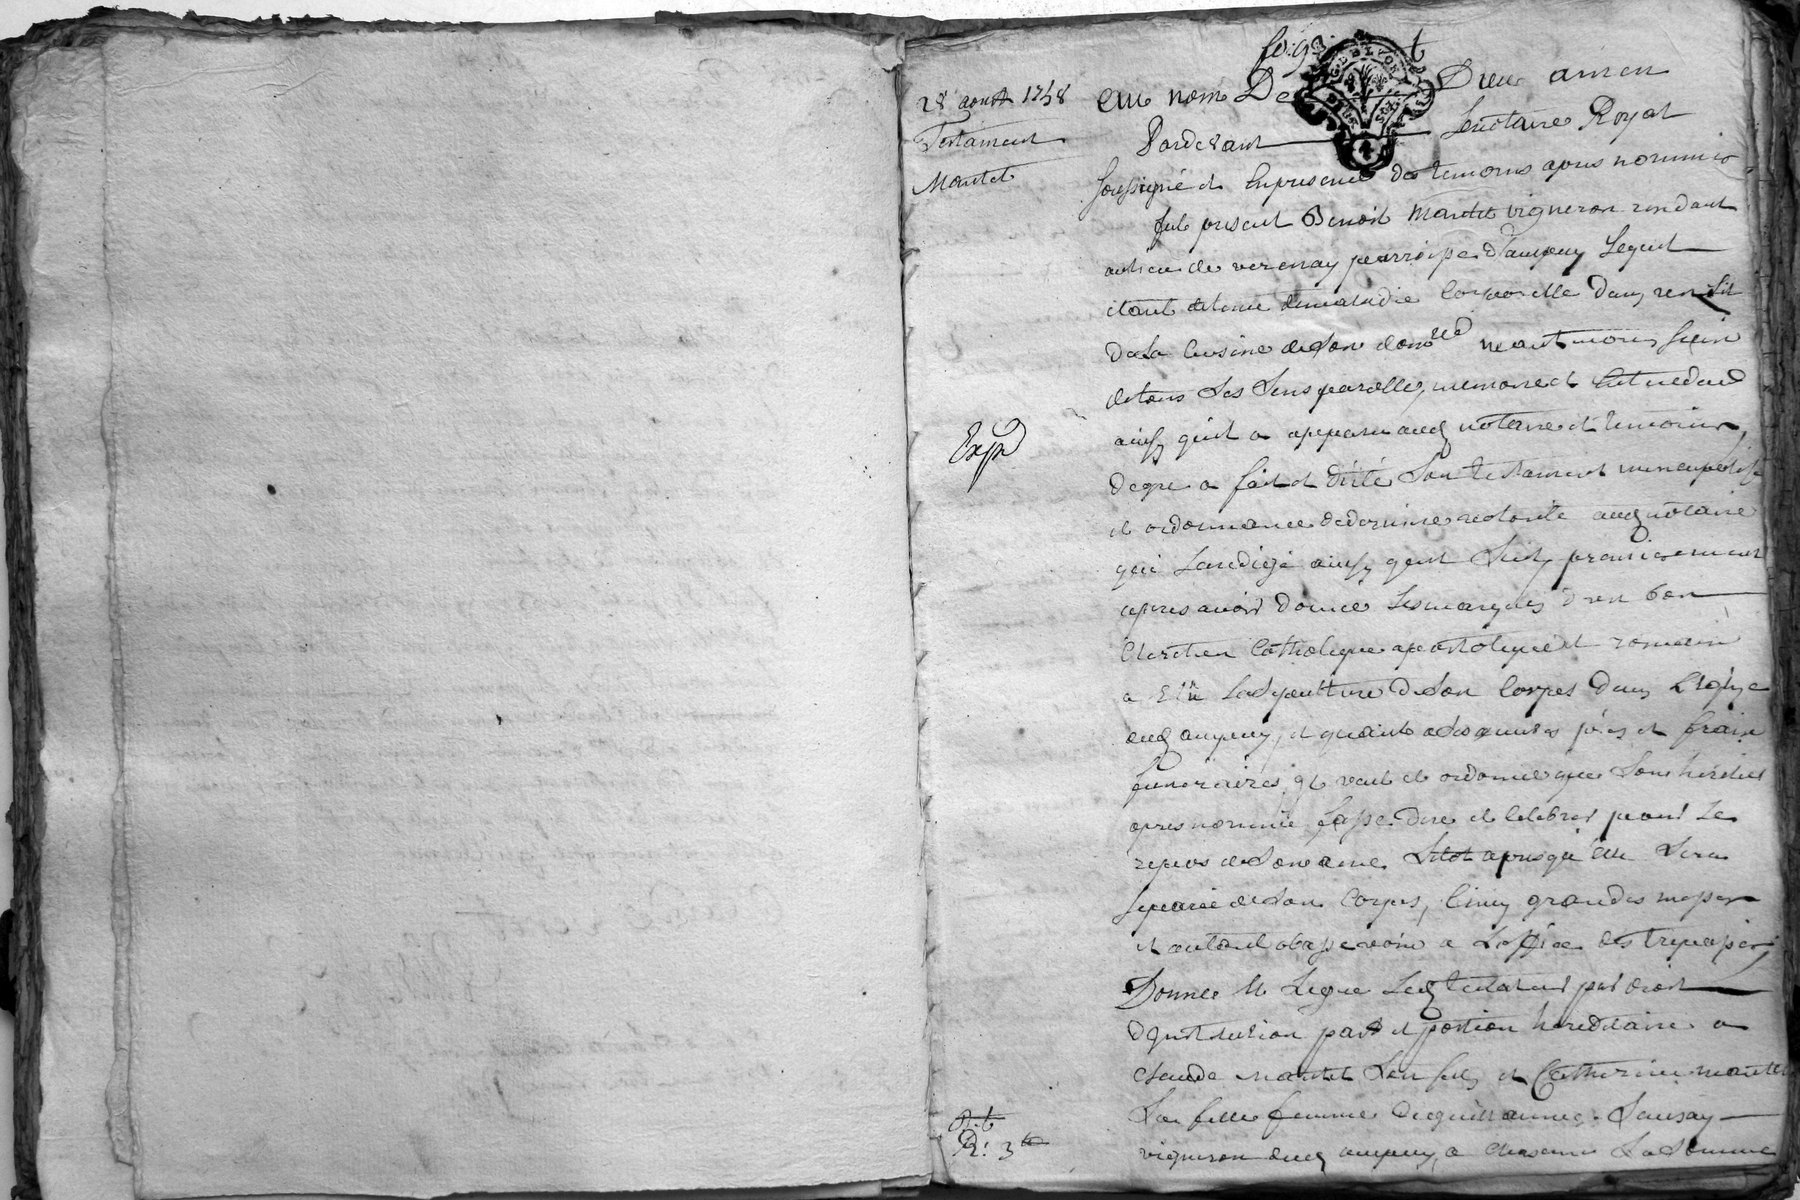 28 aoust 1758
Testament
Montet
Exp
R: 3
Au nom De Dieu amen
Pardevant Le notaire Royal
soussigné et en presence des temoins apres nommés
fut present Benoit Montet vigneron residant
au lieu de verenay parroisse d'ampuy Lequel
etant detenu de maladie corporelle dans un Lit
De La cuisine de son dom neantmoins sain
de tous ses sens parolle, memoire et entendem
ainsy quil a apparu aud notaire et temoins,
De gre a fait et dicté son testament nuncupatif
et ordonnance de derniere volonté aud notaire
qui La redigé ainsy quil suit, premierement
apres avoir donné Les marques d'un bon
Chretien Catholique apostolique et romain
a Elu La sepulture de son Corps dans L'eglise
dud ampuy, et quant a ses aumones et frais
funeraires, il veut et ordonne que son heritier
apres nommé fasse dire et celebrer pour Le
repos de son ame sitot apres qu'elle sera
separée de son Corps, cinq grandes messes
et autant a basse voix a L'office des trepassés
Donne et Legue Led testateur par droit
d'institution part et portion hereditaire a
Claude Montet son fils et Catherine Montet
sa fille femme de
vigneron dud ampuy, a chacun La somme